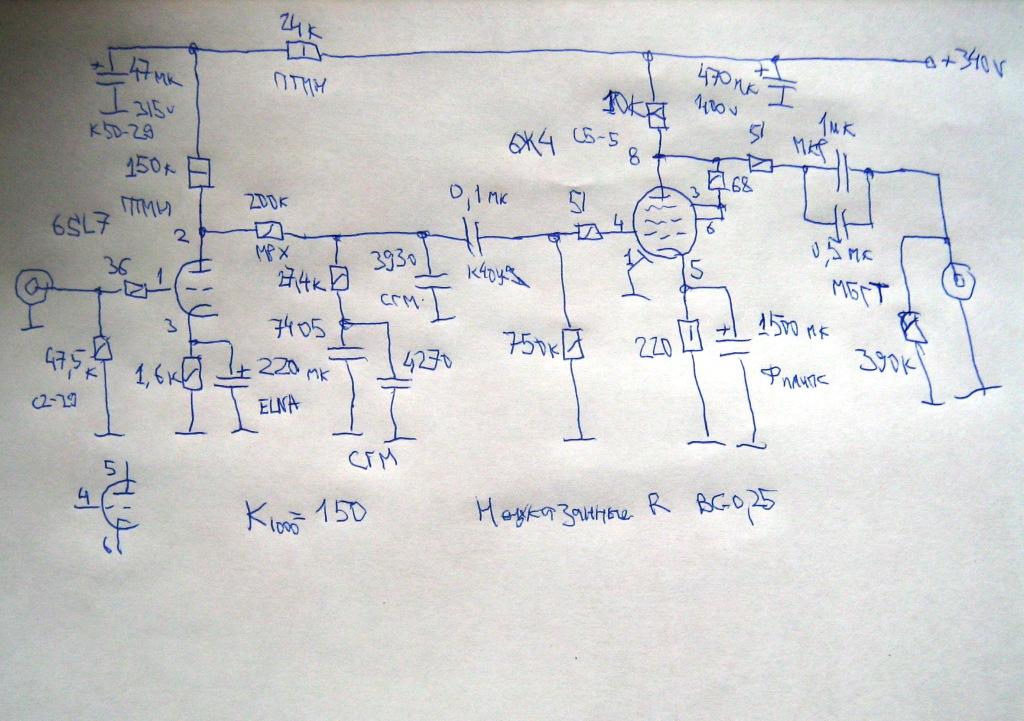 24к
ПТМН
+340v
+
47мк
315v
К50-29
470мк
400v
+
10к
С5-5
6Ж4
8
150к
ПТМН
51
1мк
68
3
6
200к
МРХ
0,1мк
51
4
6SL7
2
36
1
3
3930
СГМ
27,4к
1
5
0,5мк
МБГТ
47,5к
С2-29
1,6к
+
220мк
ELNA
7405
4270
СГМ
750к
220
+
1500мк
Филипс
390к
5
4
6
K1000=150
Неуказанные R BC 0,25